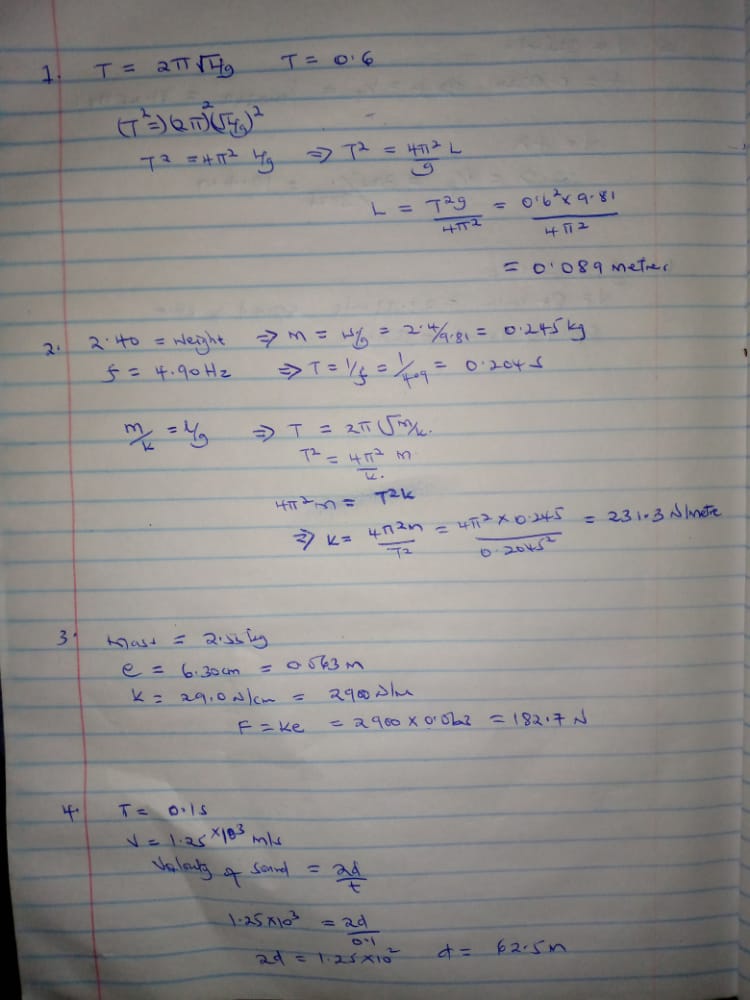 1. T = 2π√L/g T = 0.6
(T²=)(2π)²(√L/g)²
T² = 4π² L/g ⇒ T² = 4π² L / g
L = T²g / 4π² = 0.6² × 9.81 / 4π²
= 0.089 metres
2. 2.40 = Weight ⇒ m = W/g = 2.4/9.81 = 0.245 kg
f = 4.90Hz ⇒ T = 1/f = 1/4.9 = 0.204 s
m/k = L/g ⇒ T = 2π√m/k.
T² = 4π² m / k.
4π²m = T²k
⇒ k = 4π²m / T² = 4π² × 0.245 / 0.2045² = 231.3 N/metre
3. Mass = 2.55kg
e = 6.30cm = 0.063 m
K = 29.0 N/cm = 2900 N/m
F = Ke = 2900 × 0.063 = 182.7 N
4. T = 0.1s
V = 1.25 × 10³ m/s
Velocity of sound = 2d / t
1.25 × 10³ = 2d / 0.1
2d = 1.25 × 10² d = 62.5 m